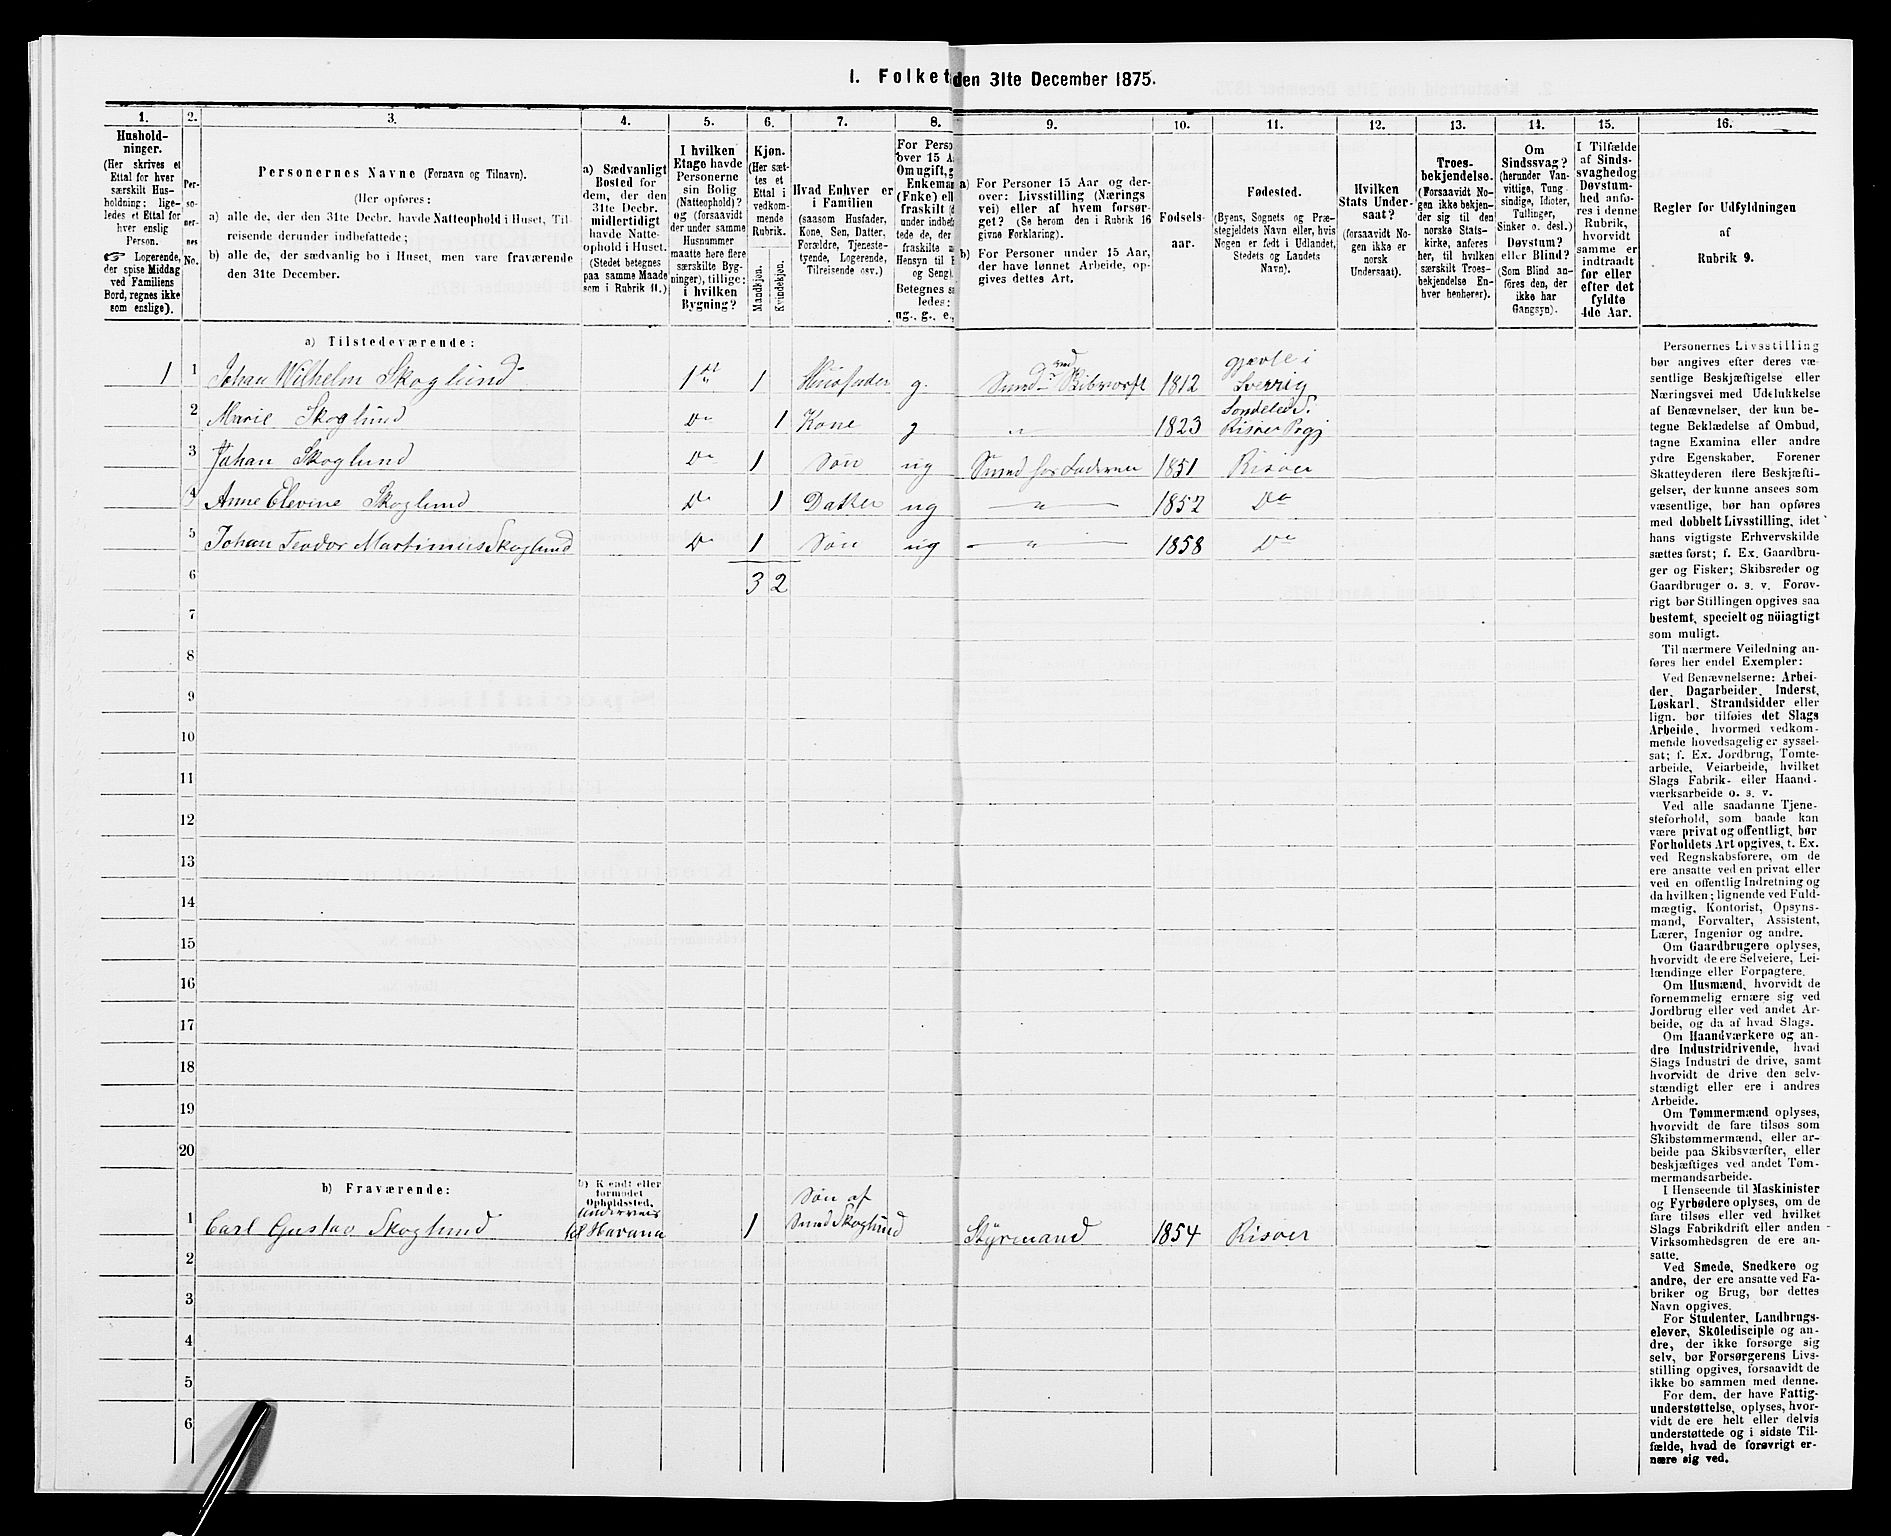 1. Folket den 31te December 1875.
1. 2. 3. 4. 5. 6. 7. 8. 9. 10. 11. 12. 13. 14. 15. 16.
Hushold-
ninger.
(Her skrives et
Ettal for hver
særskilt Hus-
holdning; lige-
ledes et Ettal for
hver enslig
Person.
☞ Logerende,
der spise Middag
ved Familiens
Bord, regnes ikke
som enslige).
Per-
so-
ner-
nes
No.
Personernes Navne (Fornavn og Tilnavn).
(Her opføres:
a) alle de, der den 31te Decbr. havde Natteophold i Huset, Til-
reisende derunder indbefattede;
b) alle de, der sædvanlig bo i Huset, men vare fraværende
den 31te December.
a) Sædvanligt
Bosted for
dem, der den
31te Decbr.
midlertidigt
havde Natte-
ophold i Huset.
(Stedet betegnes
paa samme Maade
som i Rubrik 11.)
I hvilken
Etage havde
Personerne
sin Bolig
(Natteophold)?
og (forsaavidt
der under samme
Husnummer
maatte høre flere
særskilte Byg-
ninger), tillige:
i hvilken
Bygning?
Kjøn.
(Her sæt-
tes et
Ettal i
vedkom-
mende
Rubrik.
Mandkjøn.
Kvindekjøn.
Hvad Enhver er
i Familien
(saasom Husfader,
Kone, Søn, Datter,
Forældre, Tjeneste-
tyende, Logerende,
Tilreisende osv.)
For Perso
over 15 A
Om ugift, g
Enkema
(Enke) ell
fraskilt (d
under indbef
tede de, der
fraskilte
Hensyn til B
og Seng).
Betegnes s
ledes:
ug., g., e.,
a) For Personer 15 Aar og der-
over: Livsstilling (Nærings
vei) eller af hvem forsør-
get? (Se herom den i Rubrik 16
givne Forklaring).
b) For Personer under 15 Aar,
der have lønnet Arbeide, op-
gives dettes Art.
Fødsels-
aar.
Fødested.
(Byens, Sognets og Præ-
stegjeldets Navn eller, hvis
Nogen er født i Udlandet,
Stedets og Landets
Navn).
Hvilken
Stats Under-
saat?
(forsaavidt No-
gen ikke er
norsk
Undersaat).
Troes-
bekjendelse.
(Forsaavidt No-
gen ikke bekjen-
der sig til den
norske Stats-
kirke, anføres
her, til hvilken
særskilt Troes-
bekjendelse En-
hver henhører).
Om
Sindssvag?
(herunder Van-
vittige, Tung
sindige, Idioter,
Tullinger,
Sinker o. desl.)
Døvstum?
eller Blind?
(Som Blind an-
føres den, der
ikke har
Gangsyn).
I Tilfælde
af Sinds-
svaghed og
Døvstum-
hed anfø-
res i denne
Rubrik,
hvorvidt
samme er
indtraadt
før eller
efter det
fyldte
4de Aar.
Regler for Udfyldningen
af
Rubrik 9.
a) Tilstedeværende:
1 1 Johan Wilhelm Skoglund 1 1 Husfader g. 1812 gjevle i
Sverrig
2 Marie Skoglund Do 1 Kone g " 1823 Søndeled S.
Risøer
3 Johan Skoglund Do 1 Søn ug Smed hos Faderen 1851 Risøer
4 Anne Elevine Skoglund Do 1 Datter ug " 1852 Do
5 Johan Teodor Martinius Skoglund Do 1 Søn ug " 1858 Do
6 3 2
7
8
9
10
11
12
13
14
15
16
17
18
19
20
b) Fraværende:
b) Kjendt eller
formodet
Opholdssted.
1 Carl Gustav Skoglund underveis
til Havana 1 Søn af
Smed Skoglund Styrmand 1854 Risøer
2
3
4
5
6
Personernes Livsstilling
bør angives efter deres væ-
sentlige Beskjæftigelse eller
Næringsvei med Udelukkelse
af Benævnelser, der kun be-
tegne Beklædelse af Ombud,
tagne Examina eller andre
ydre Egenskaber. Forener
Skatteyderen flere Beskjæfti-
gelser, der kunne ansees som
væsentlige, bør han opføres
med dobbelt Livsstilling, idet
hans vigtigste Erhvervskilde
sættes først; f. Ex. Gaardbru-
ger og Fisker; Skibsreder og
Gaardbruger o. s. v. Forøv-
rigt bør Stillingen opgives saa
bestemt, specielt og nöiagtigt
som muligt.
Til nærmere Veiledning an-
føres her endel Exempler:
Ved Benævnelserne: Arbei-
der, Dagarbeider, Inderst,
Løskarl, Strandsidder eller
lign. bør tilføies det Slags
Arbeide, hvormed vedkom-
mende hovedsagelig er syssel-
sat; f. Ex. Jordbrug, Tomte-
arbeide, Veiarbeide, hvilket
Slags Fabrik- eller Haand-
værksarbeide o. s. v.
Ved alle saadanne Tjene-
steforhold, som baade kan
være privat og offentligt, bør
Forholdets Art opgives, t. Ex.
ved Regnskabsførere, om de
ere ansatte ved en privat eller
ved en offentlig Indretning og
da hvilken; lignende ved Fuld-
mægtig, Kontorist, Opsyns-
mand, Forvalter, Assistent,
Lærer, Ingeniør og andre.
Om Gaardbrugere oplyses,
hvorvidt de ere Selveiere, Lei-
lændinge eller Forpagtere.
Om Husmænd, hvorvidt de
fornemmelig ernære sig ved
Jordbrug eller ved andet Ar-
beide, og da af hvad Slags.
Om Haandværkere og an-
dre Industridrivende, hvad
Slags Industri de drive, samt
hvorvidt de drive den selv-
stændigt eller ere i andres
Arbeide.
Om Tømmermænd oplyses,
hvorvidt de fare tilsøs som
Skibstømmermænd, eller ar-
beide paa Skibsværfter, eller
beskjæftiges ved andet Tøm-
mermandsarbeide.
I Henseende til Maskinister
og Fyrbødere oplyses, om de
fare tilsøs eller ved hvilket
Slags Fabrikdrift eller anden
Virksomhedsgren de ere an-
satte.
Ved Smede, Snedkere og
andre, der ere ansatte ved Fa-
briker og Brug, bør dettes
Navn opgives.
For Studenter, Landbrugs-
elever, Skoledisciple og an-
dre, der ikke forsørge sig
selv, bør Forsørgerens Livs-
stilling opgives, forsaavidt de
ikke bo sammen med denne.
For dem, der have Fattig-
understøttelse, oplyses, hvor-
vidt de ere helt eller delvis
understøttede og i sidste Til-
fælde, hvad de forøvrigt er-
nære sig ved.